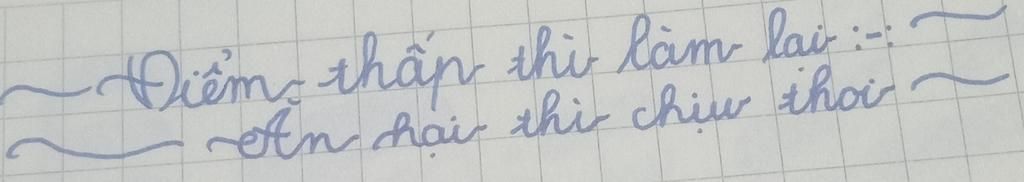 ~ Điểm thấp thì làm lại :-: ~
~ Ăn hại thì chịu thoi ~